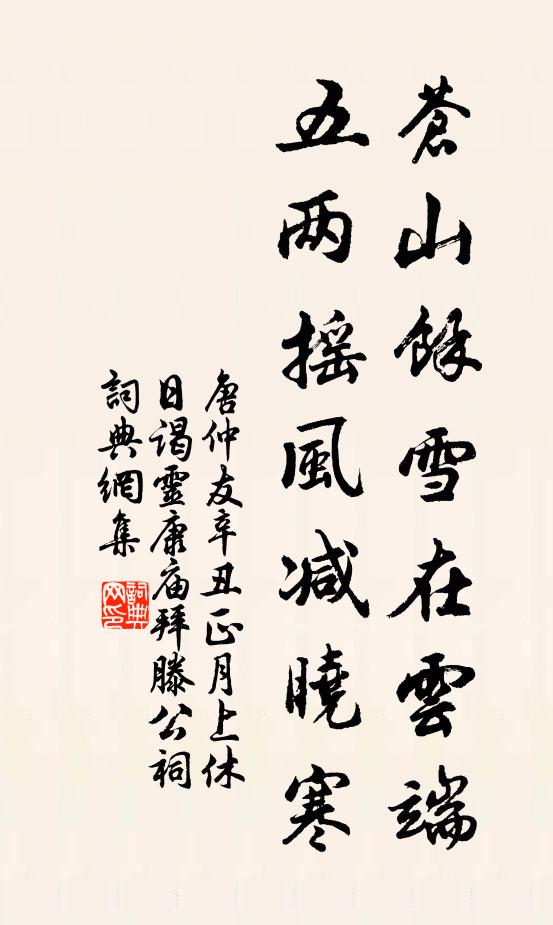 蒼山餘雪在雲端
五两摇風减曉寒
唐仲友辛丑正月上休
日谒靈康庙拜滕公祠
詞典網集
詞典网印